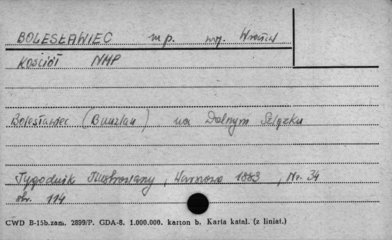 BOLESŁAWIEC m.p. woj. Wrocł.
KOŚCIÓŁ NMP
Bolesławiec (Bunzlau) na Dolnym Szląsku
Tygodnik Illustrowany, Warszawa 1883, Nr. 34
str. 114
CWD B-15b.zam. 2899/P. GDA-8. 1.000.000. karton b. Karta katal. (z liniat.)